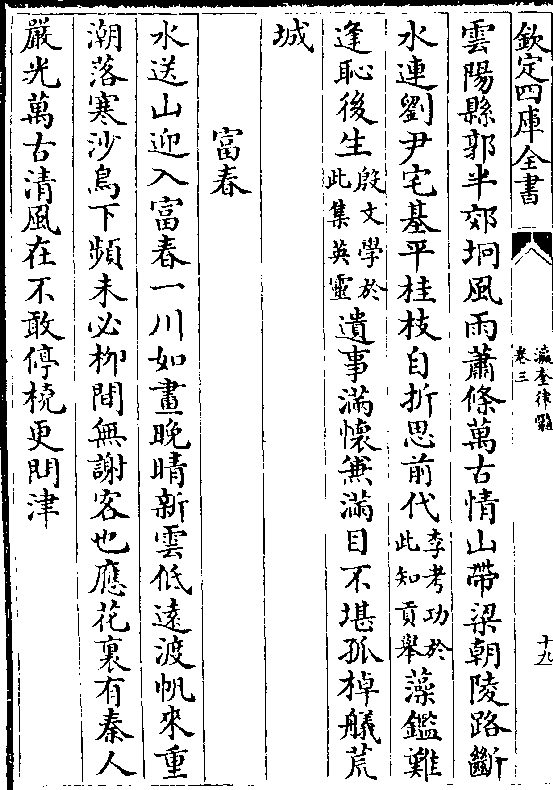 欽定四庫全書
瀛奎律髓
卷三
十九
雲陽縣郭半郊坰風雨蕭條萬古情山帶梁朝陵路斷
水連劉尹宅基平桂枝自折思前代李考功於此知貢舉藻鑑難
逢恥後生殷文學於此集英靈遺事滿懷兼滿目不堪孤棹艤荒
城
富春
水送山迎入富春一川如畫晚晴新雲低遠渡帆來重
潮落寒沙鳥下頻未必栁間無謝客也應花裏有秦人
嚴光萬古清風在不敢停橈更問津